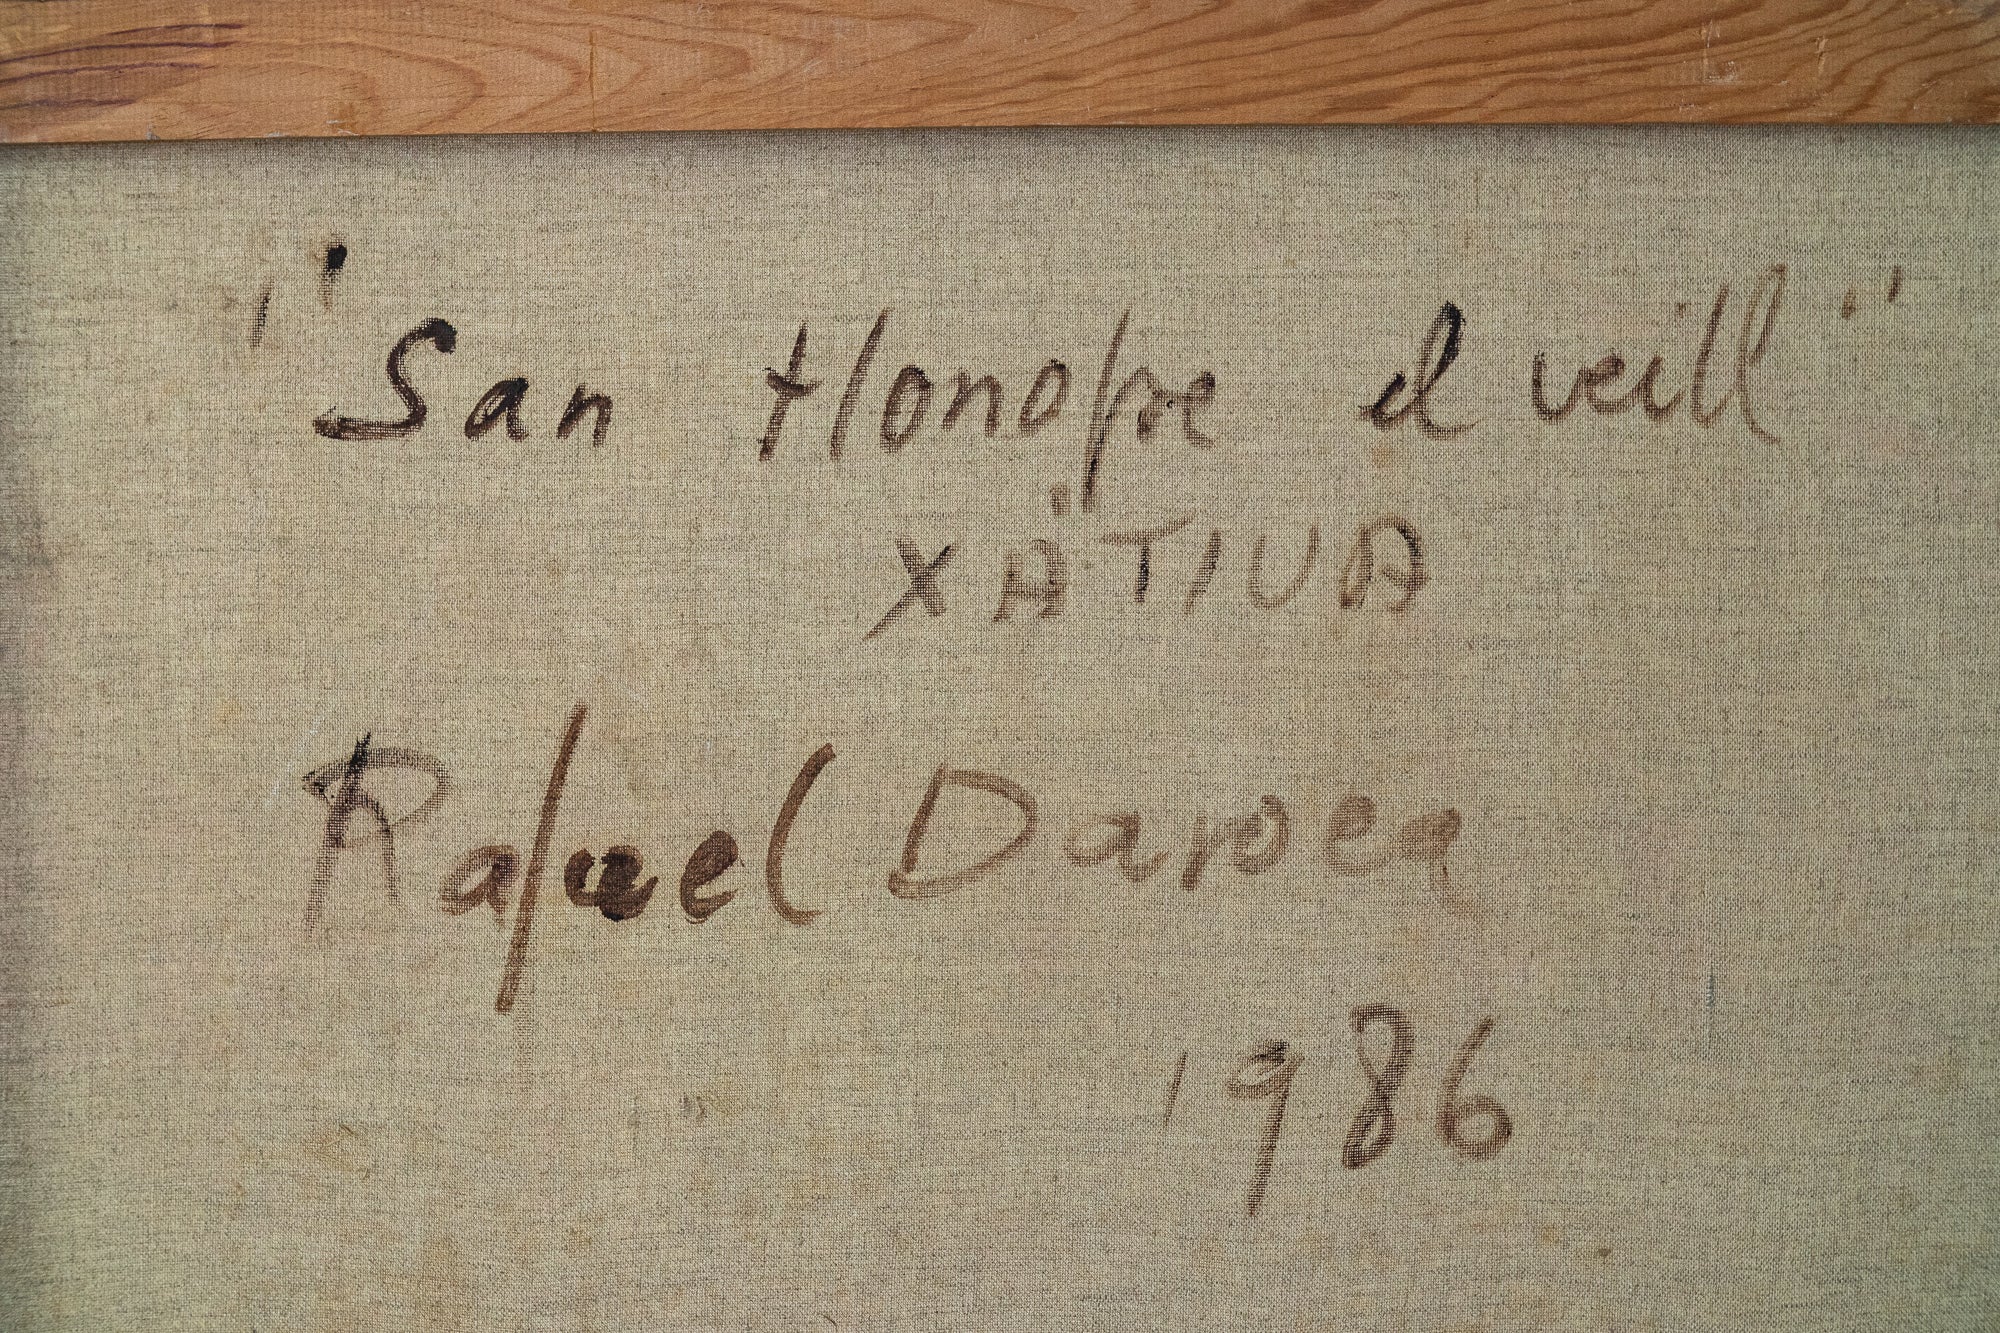 "San Honofre el veill"
XÀTIVA
Rafael Daroca
1986